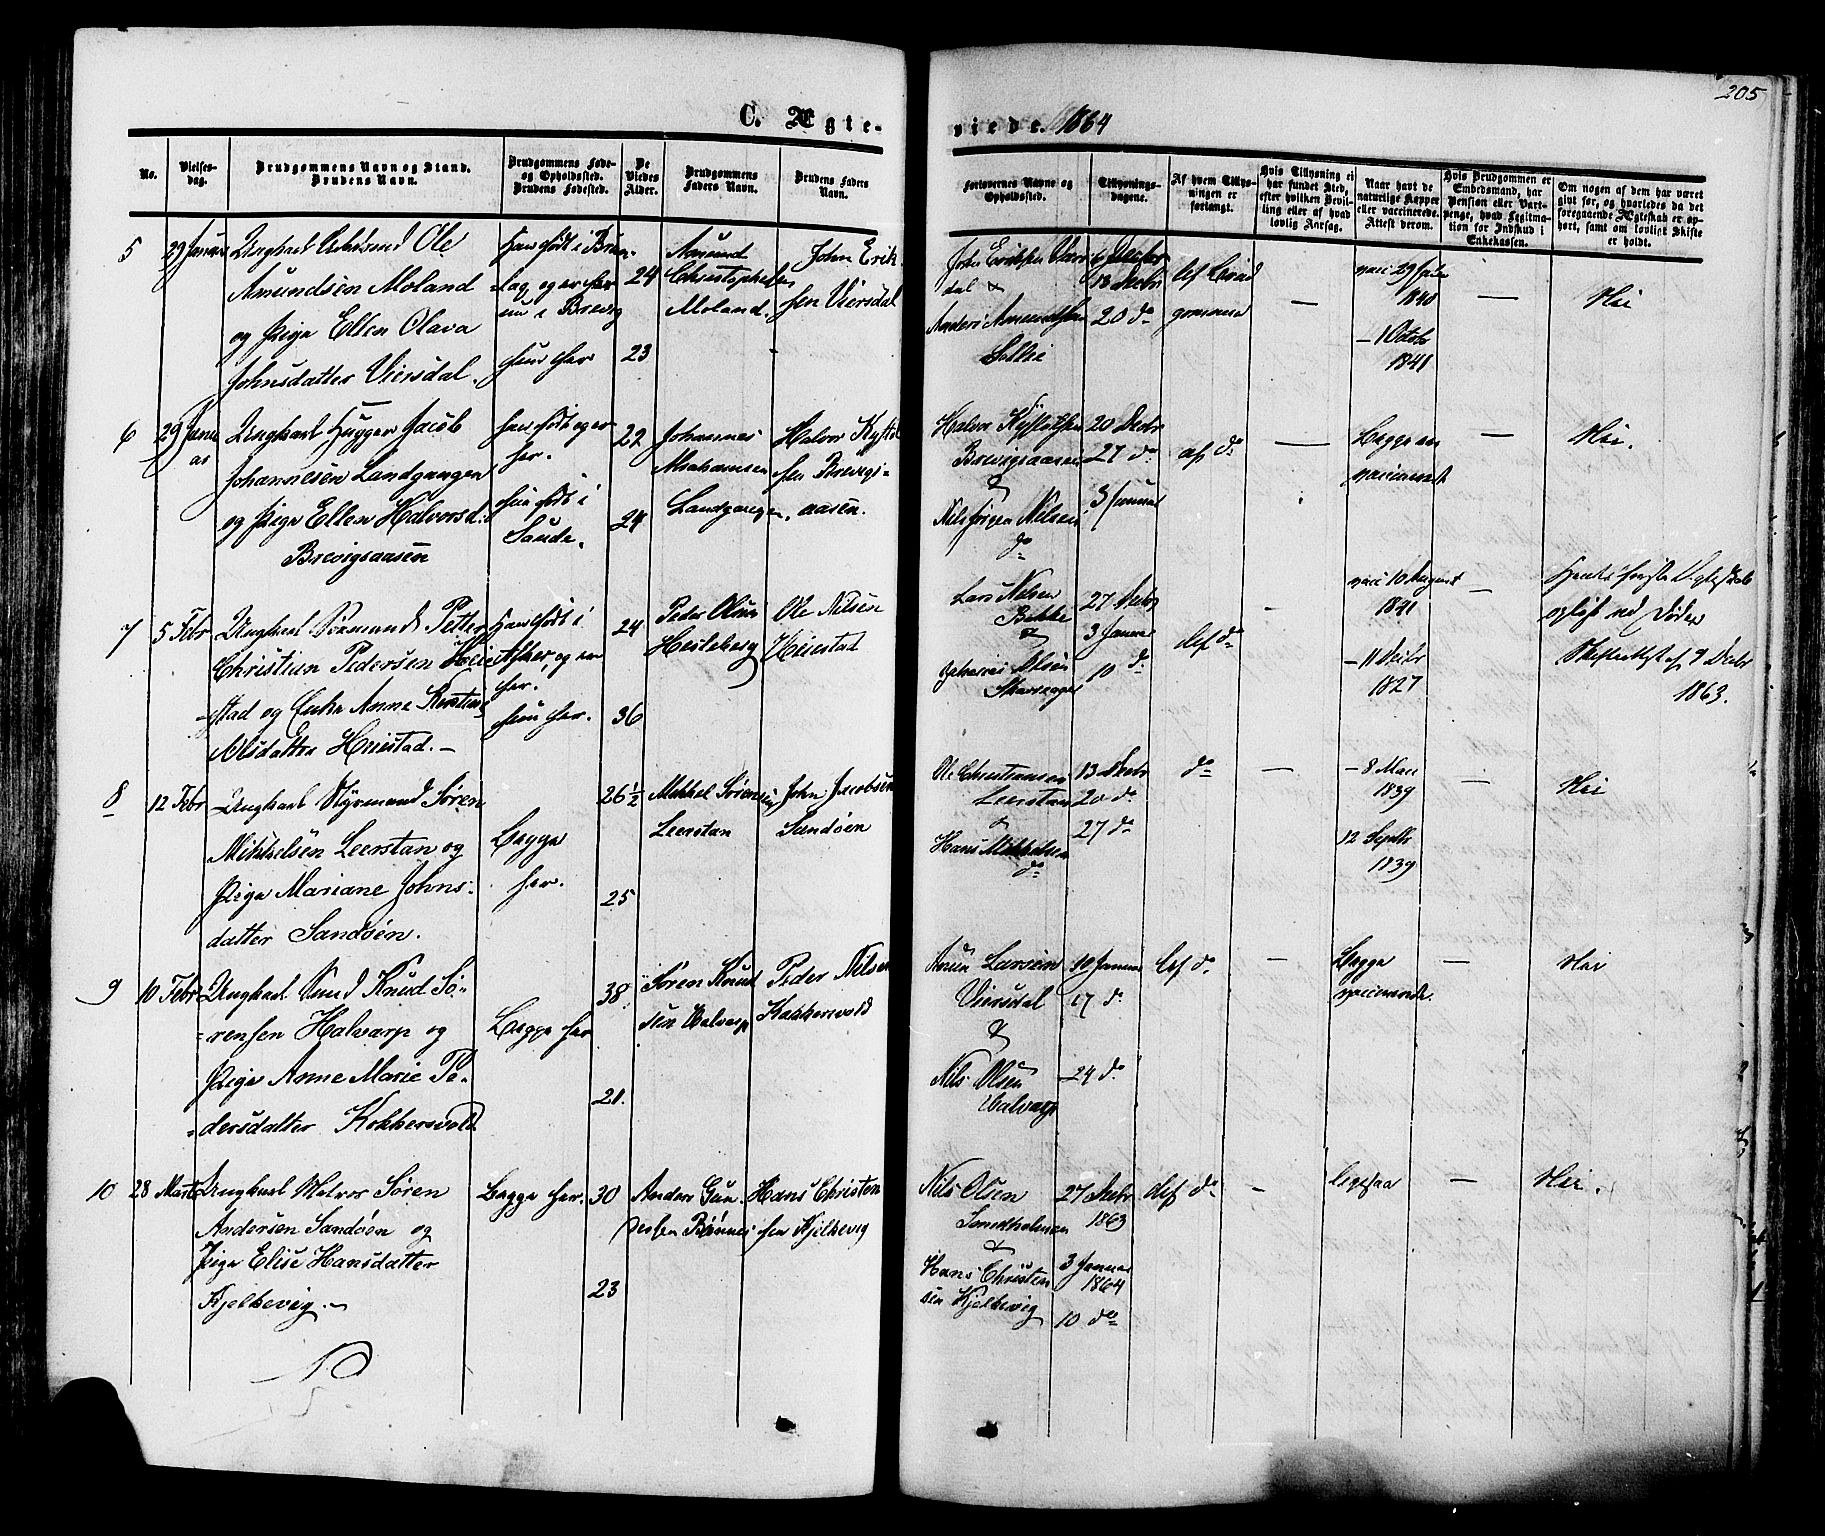 205
C. Ægte-
viede. 1864
No.
Vielses-
dag.
Brudgommens Navn og Stand.
Brudens Navn.
Brudgommens Føde-
og Opholdssted.
Brudens Fødested.
De
Viedes
Alder.
Brudgommens
Faders Navn.
Brudens Faders
Navn.
Forlovernes Navne og
Opholdssted.
Tillysnings-
dagene.
Af hvem Tillys-
ningen er
forlangt.
Hvis Tillysning ei
har fundet Sted,
efter hvilken Bevil-
ling eller af hvad
lovlig Aarsag.
Naar havt de
naturlige Kopper
eller vaccinerede.
Attest derom.
Hvis Brudgommen er
Embedsmand, har
Pension eller Vart-
penge, hvad Legitima-
tion for Indskud i
Enkekassen.
Om nogen af dem har været
givt før, og hvorledes da det
foregaaende Ægteskab er op-
hørt, samt om lovligt Skifte
er holdt.
5
29 Januar
Ungkarl Ole
Amundsen Moland
og Pige Ellen Olava
Johnsdatter Viersdal.
Han født i
og er her
i Brevig
hun her
24
23
Amund
Christophersen
Moland.
John Erik-
sen Viersdal
John Eriksen Viers
dal &
Anders Amundsen
6 Decbr
13 Decbr
20 do
af Brud
gommen
—
vacc 29
1840
— 1 Octobr
1841
—
Nei
6
29 Janu
ar
Ungkarl Hugger Jacob
Johannesen Landgangen
og Pige Ellen Halvorsd.
Brevigsaasen
han født og er
her.
hun født i
Sande.
22
24
Johannes
Abrahamsen
Landgangen.
Halvor
sen Brevigs-
aasen.
Halvor
Brevigsaasen
&
Nils Jørgen Nilsen
do
20 Decbr
27 do
3 Januar
af do
—
Begge
vaccineret
—
Nei.
7
5 Febr
Ungkarl Sømand Petter
Christian Pedersen Heie
stad og Enke Anne Kirstine
Olsdatter Heiestad. —
Han født i
og er
her.
hun her.
24
36
Peder Olsen
Ole Nilsen
Heiestad
Lars Nilsen
Bakke
&
Olsen
27 Decbr
3 Januar
10 do
af do
—
vacc 10 August
1841
— 11 Decbr
1827
—
første Ægteskab
opløst ved Døden
Skifteattest af 7 Decbr
1863.
8
12 Febr
Ungkarl Styrmand Søren
Mikkelsen Leerstan og
Pige Mariane Johns-
datter Sandøen.
Begge
her.
26 ½
25
Mikkel Sørensen
Leerstan
John Jacobsen
Sandøen
Ole Christiansen
Leerstan
&
Hans Mikkelsen
do
13 Decbr
20 do
27 do
do
—
— 8 Mai
1839
12 Septbr
1839
—
Nei
9
10 Febr
Ungkarl Knud Sø-
rensen Halvarp og
Pige Anne Marie Pe-
dersdatter Kokkersvold
Begge her
38.
21.
Søren Knud
sen Halvarp
Peder Nilsen
Kokkersvold
Larsen
Viersdal
&
Nils Olsen
Halvarp
10 Januar
17 do
24 do
af do
—
Begge
vaccinerede.
—
Nei
10
28 Marts
Ungkarl Matros Søren
Andersen Sandøen og
Pige Elise Hansdatter
Kjelkevig. —
Begge her.
30
23
Anders Gun
dersen
Hans Christen
sen Kjelkevig
Nils Olsen
Smedholmen
&
Hans Christen
sen Kjelkevig
27 Decbr
1863
3 Januar
1864
10 do
af do
—
ligesaa
—
Nei.